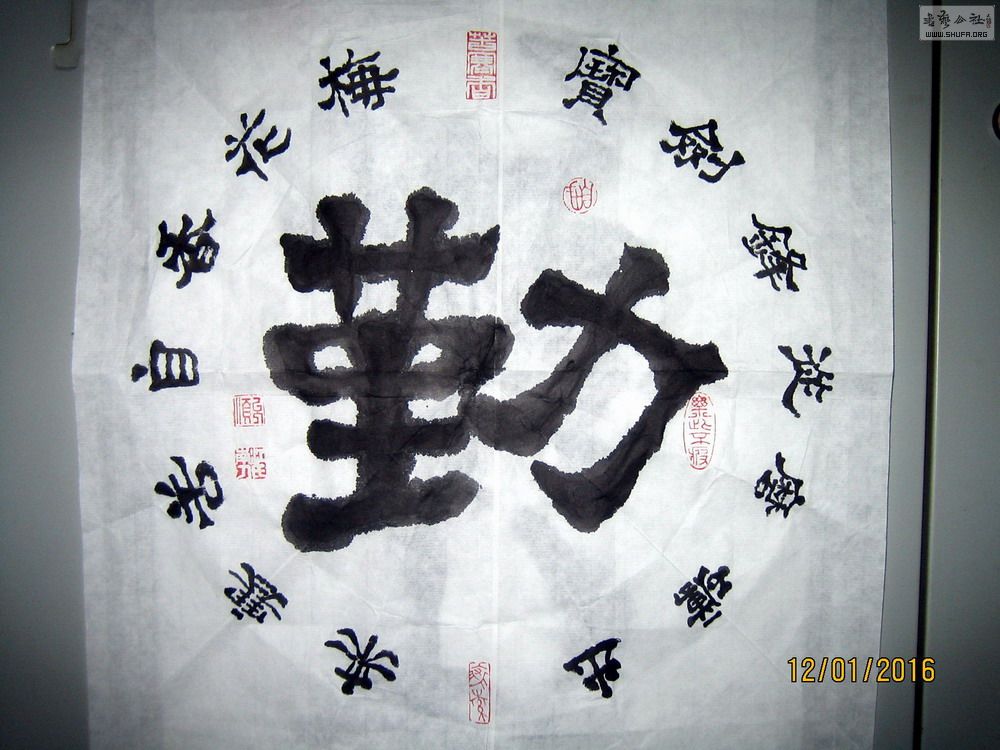 勤
寶劍鋒從磨礪出
梅花香自苦寒來
樂此不疲
書藝公社
WWW.SHUFA.ORG
12/01/2016